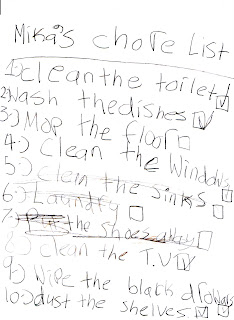 Mika's chore List
1.) clean the toilet
2.) Wash the dishes
3.) Mop the floor
4.) Clean the Windows
5.) Clein the sinks
6.) Laundry
7.) Put the shoes away
8.) clean the T.V
9.) Wipe the black drowars
10.) dust the shelves